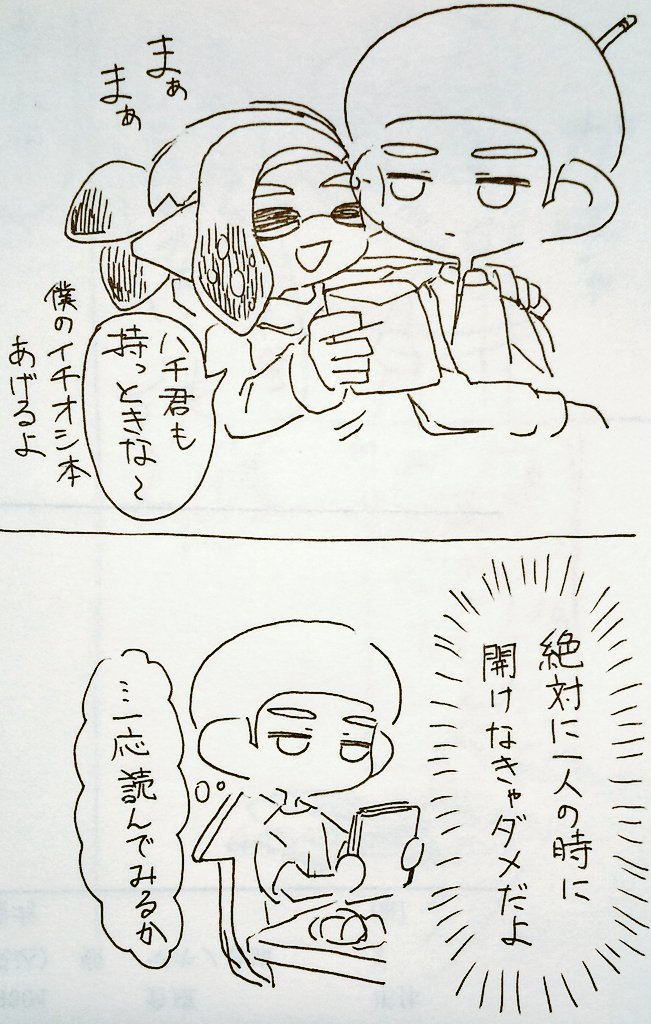 まぁ
まぁ
ハチ君も
持っときな〜
僕のイチオシ本
あげるよ
絶対に一人の時に
開けなきゃダメだよ
…一応読んでみるか